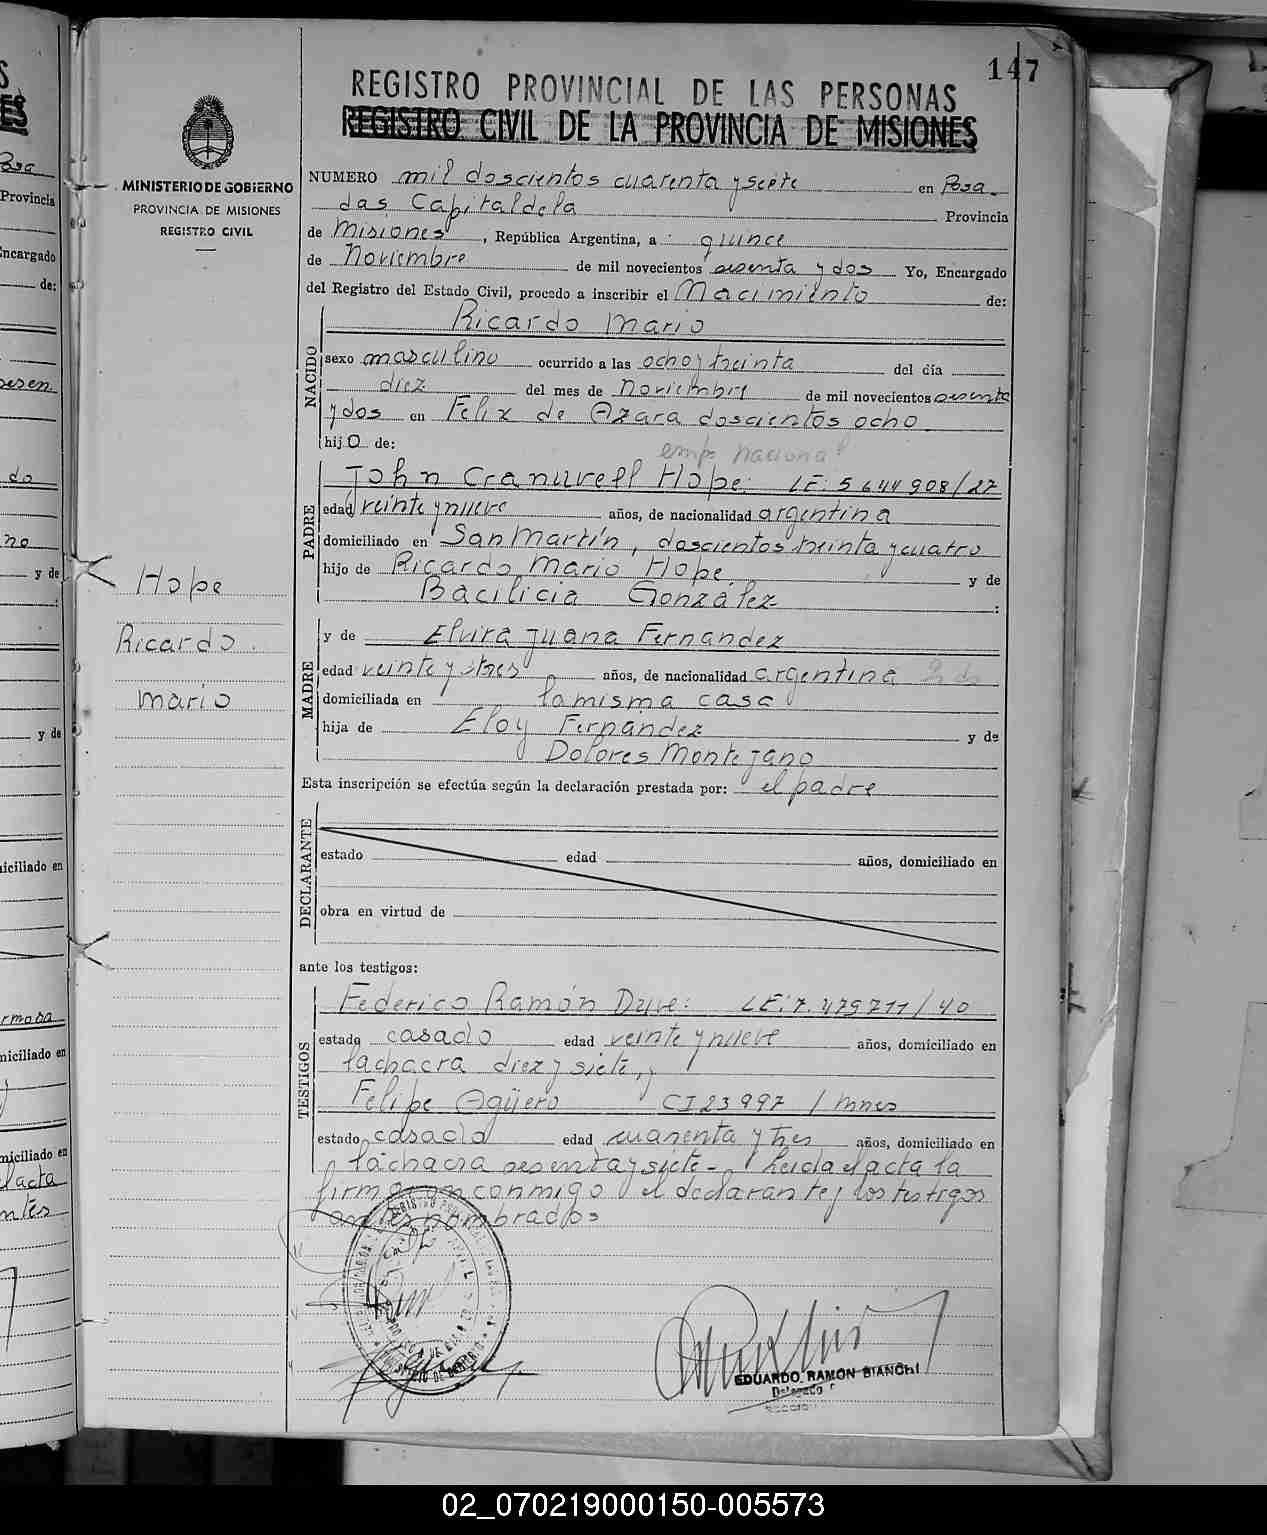 147
REGISTRO PROVINCIAL DE LAS PERSONAS
REGISTRO CIVIL DE LA PROVINCIA DE MISIONES
MINISTERIO DE GOBIERNO
PROVINCIA DE MISIONES
REGISTRO CIVIL
NUMERO mil doscientos cuarenta y siete en Posa-
das Capital de la Provincia
de Misiones, República Argentina, a quince
de Noviembre de mil novecientos sesenta y dos Yo, Encargado
del Registro del Estado Civil, procedo a inscribir el Nacimiento de:
NACIDO
Ricardo Mario
sexo masculino ocurrido a las ocho y treinta del día
diez del mes de Noviembre de mil novecientos sesenta
y dos en Felix de Azara doscientos ocho.
hijo de:
emp. nacional
PADRE
John Cranwell Hope: LE: 5644908/27
edad veinte y nueve años, de nacionalidad argentina
domiciliado en San Martín, doscientos treinta y cuatro
hijo de Ricardo Mario Hope y de
Bacilicia González :
Hope
Ricardo.
Mario
MADRE
y de Elvira Juana Fernandez
edad veinte y tres años, de nacionalidad argentina
domiciliada en la misma casa
hija de Eloy Fernandez y de
Dolores Montejano
Esta inscripción se efectúa según la declaración prestada por: el padre
DECLARANTE
estado edad años, domiciliado en
obra en virtud de
ante los testigos:
TESTIGOS
Federico Ramón Duve: LE: 7.479711/40
estado casado edad veinte y nueve años, domiciliado en
la chacra diez y siete, y
Felipe Agüero CI 23997 / Mnes
estado casado edad cuarenta y tres años, domiciliado en
la chacra sesenta y siete- Leida el acta la
firmaron conmigo el declarante y los testigos
antes nombrados
EDUARDO RAMON BIANCHI
Delegado
02_070219000150-005573